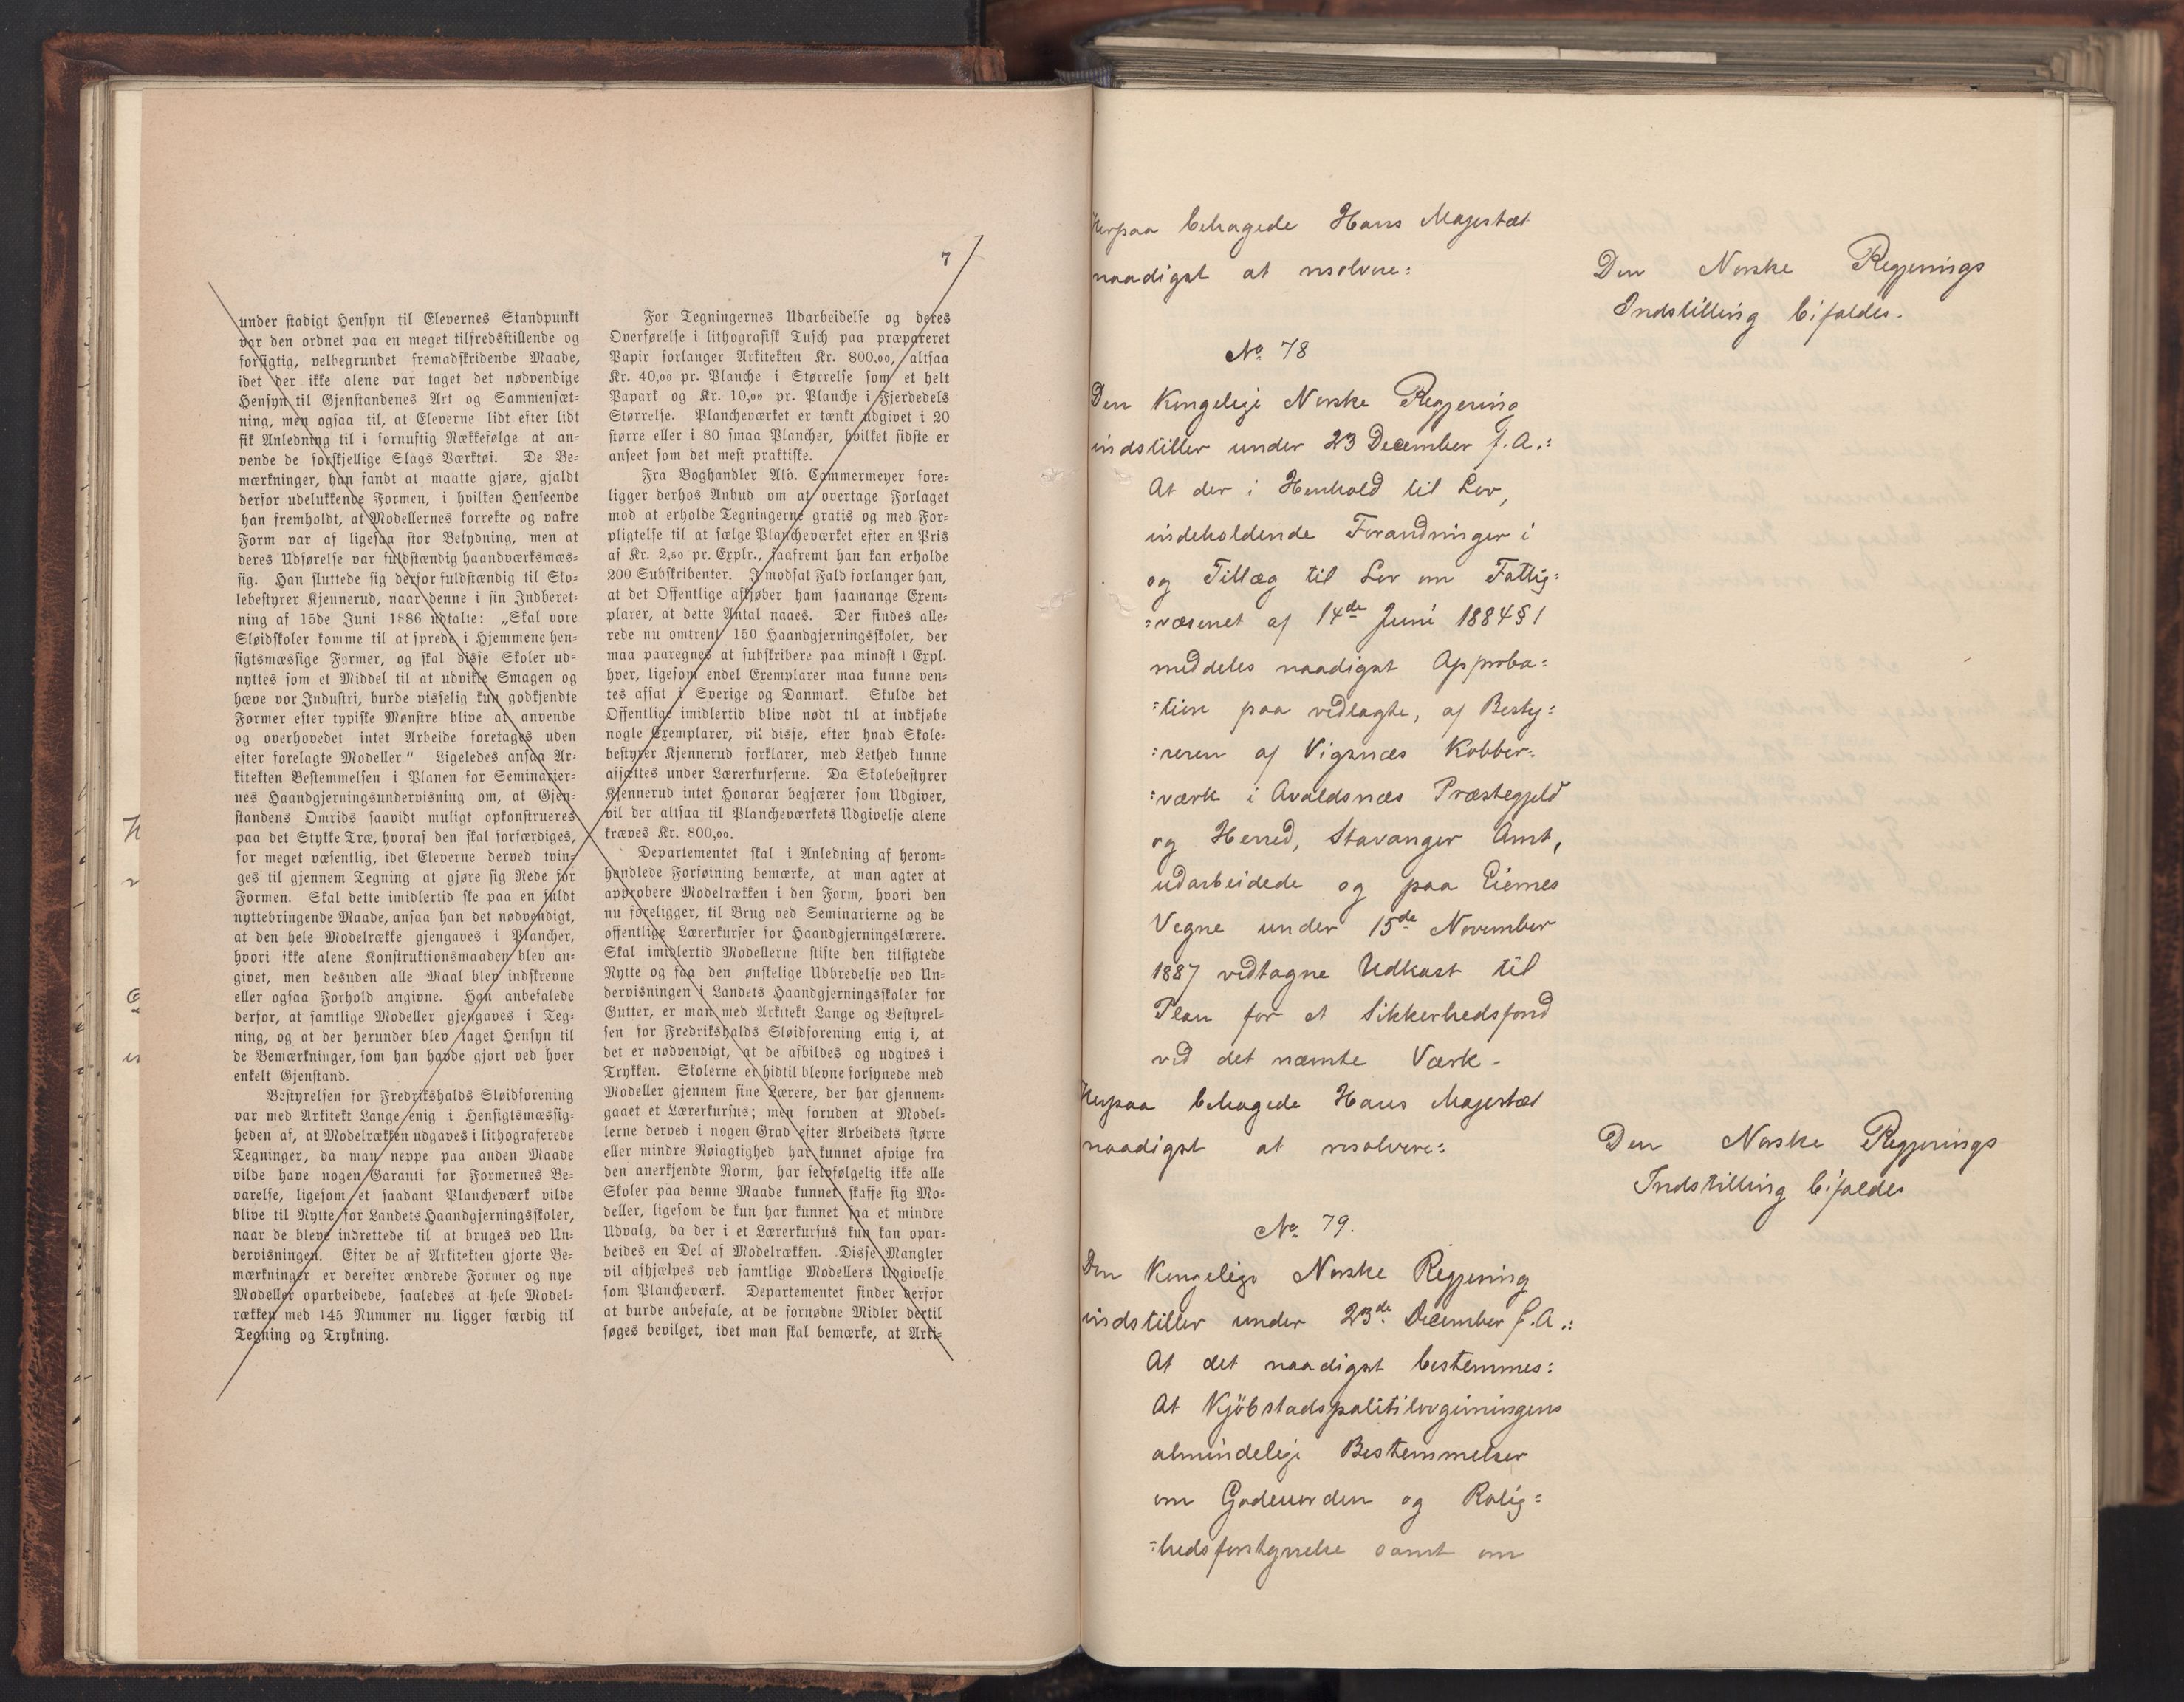 7
under stadigt Hensyn til Elevernes Standpunkt
var den ordnet paa en meget tilfredsstillende og
forsigtig, velbegrundet fremadskridende Maade,
idet der ikke alene var taget det nødvendige
Hensyn til Gjenstandenes Art og Sammensæt-
ning, men ogsaa til, at Eleverne lidt efter lidt
fik Anledning til i fornuftig Rækkefølge at an-
vende de forskjellige Slags Værktøi. De Be-
mærkninger, han fandt at maatte gjøre, gjaldt
derfor udelukkende Formen, i hvilken Henseende
han fremholdt, at Modellernes korrekte og vakre
Form var af ligesaa stor Betydning, men at
deres Udførelse var fuldstændig haandværksmæs-
sig. Han sluttede sig derfor fuldstændig til Sko-
lebestyrer Kjennerud, naar denne i sin Indberet-
ning af 15de Juni 1886 udtalte: „Skal vore
Sløidskoler komme til at sprede i Hjemmene hen-
sigtsmæssige Former, og skal disse Skoler ud-
nyttes som et Middel til at udvikle Smagen og
hæve vor Industri, burde visselig kun godkjendte
Former efter typiske Mønstre blive at anvende
og overhovedet intet Arbeide foretages uden
efter forelagte Modeller“ Ligeledes ansaa Ar-
kitekten Bestemmelsen i Planen for Seminarier-
nes Haandgjerningsundervisning om, at Gjen-
standens Omrids saavidt muligt opkonstrueres
paa det Stykke Træ, hvoraf den skal forfærdiges,
for meget væsentlig, idet Eleverne derved tvin-
ges til gjennem Tegning at gjøre sig Rede for
Formen. Skal dette imidlertid ske paa en fuldt
nyttebringende Maade, ansaa han det nødvendigt,
at den hele Modelrække gjengaves i Plancher,
hvori ikke alene Konstruktionsmaaden blev an-
givet, men desuden alle Maal blev indskrevne
eller ogsaa Forhold angivne. Han anbefalede
derfor, at samtlige Modeller gjengaves i Teg-
ning, og at der herunder blev taget Hensyn til
de Bemærkninger, som han havde gjort ved hver
enkelt Gjenstand.
Bestyrelsen for Fredrikshalds Sløidforening
var med Arkitekt Lange enig i Hensigtsmæssig-
heden af, at Modelrækken udgaves i lithograferede
Tegninger, da man neppe paa anden Maade
vilde have nogen Garanti for Formernes Be-
varelse, ligesom et saadant Plancheværk vilde
blive til Nytte for Landets Haandgjerningsskoler,
naar de bleve indrettede til at bruges ved Un-
dervisningen. Efter de af Arkitekten gjorte Be-
mærkninger er derefter ændrede Former og nye
Modeller oparbeidede, saaledes at hele Model-
rækken med 145 Nummer nu ligger færdig til
Tegning og Trykning.
For Tegningernes Udarbeidelse og deres
Overførelse i lithografisk Tusch paa præpareret
Papir forlanger Arkitekten Kr. 800,00, altsaa
Kr. 40,00 pr. Planche i Størrelse som et helt
Papark og Kr. 10,00 pr. Planche i Fjerdedels
Størrelse. Plancheværket er tænkt udgivet i 20
større eller i 80 smaa Plancher, hvilket sidste er
anseet som det mest praktiske.
Fra Boghandler Alb. Cammermeyer fore-
ligger derhos Anbud om at overtage Forlaget
mod at erholde Tegningerne gratis og med For-
pligtelse til at sælge Plancheværket efter en Pris
af Kr. 2,50 pr. Explr., saafremt han kan erholde
200 Subskribenter. I modsat Fald forlanger han,
at det Offentlige afkjøber ham saamange Exem-
plarer, at dette Antal naaes. Der findes alle-
rede nu omtrent 150 Haandgjerningsskoler, der
maa paaregnes at subskribere paa mindst 1 Expl.
hver, ligesom endel Exemplarer maa kunne ven-
tes afsat i Sverige og Danmark. Skulde det
Offentlige imidlertid blive nødt til at indkjøbe
nogle Exemplarer, vil disse, efter hvad Skole-
bestyrer Kjennerud forklarer, med Lethed kunne
afsættes under Lærerkurserne. Da Skolebestyrer
Kjennerud intet Honorar begjærer som Udgiver,
vil der altsaa til Plancheværkets Udgivelse alene
kræves Kr. 800,00.
Departementet skal i Anledning af herom-
handlede Forføining bemærke, at man agter at
approbere Modelrækken i den Form, hvori den
nu foreligger, til Brug ved Seminarierne og de
offentlige Lærerkurser for Haandgjerningslærere.
Skal imidlertid Modellerne stifte den tilsigtede
Nytte og faa den ønskelige Udbredelse ved Un-
dervisningen i Landets Haandgjerningsskoler for
Gutter, er man med Arkitekt Lange og Bestyrel-
sen for Fredrikshalds Sløidforening enig i, at
det er nødvendigt, at de afbildes og udgives i
Trykken. Skolerne er hidtil blevne forsynede med
Modeller gjennem sine Lærere, der har gjennem-
gaaet et Lærerkursus; men foruden at Model-
lerne derved i nogen Grad efter Arbeidets større
eller mindre Nøiagtighed har kunnet afvige fra
den anerkjendte Norm, har selvfølgelig ikke alle
Skoler paa denne Maade kunnet skaffe sig Mo-
deller, ligesom de kun har kunnet faa et mindre
Udvalg, da der i et Lærerkursus kun kan opar-
beides en Del af Modelrækken. Disse Mangler
vil afhjælpes ved samtlige Modellers Udgivelse
som Plancheværk. Departementet finder derfor
at burde anbefale, at de fornødne Midler dertil
søges bevilget, idet man skal bemærke, at Arki-
Herpaa behagede Hans Majestæt
naadigst at resolvere:
Den Norske Regjerings
Indstilling bifaldes.
No. 78
Den Kongelige Norske Regjering
indstiller under 23 December f. A.:
At der i Henhold til Lov,
indeholdende Forandringer i
og Tillæg til Lov om Fattig=
=væsenet af 14de Juni 1884 § 1
meddeles naadigst Approba=
=tion paa vedlagte, af Besty=
=reren af Vigsnæs Kobber=
=værk i Avaldsnæs Præstegjeld
og Herred, Stavanger Amt,
udarbeidede og paa Eiernes
Vegne under 15de November
1887 vedtagne Udkast til
Plan for et Sikkerhedsfond
ved det nævnte Værk.
Herpaa behagede Hans Majestæt
naadigst at resolvere:
Den Norske Regjerings
Indstilling bifaldes
No. 79.
Den Kongelige Norske Regjering
indstiller under 23de December f. A.:
At det naadigst bestemmes:
At Kjöbstadspolitilovgivningens
almindelige Bestemmelser
om Gadeuorden og Rolig=
=hedsforstyrrelse samt om